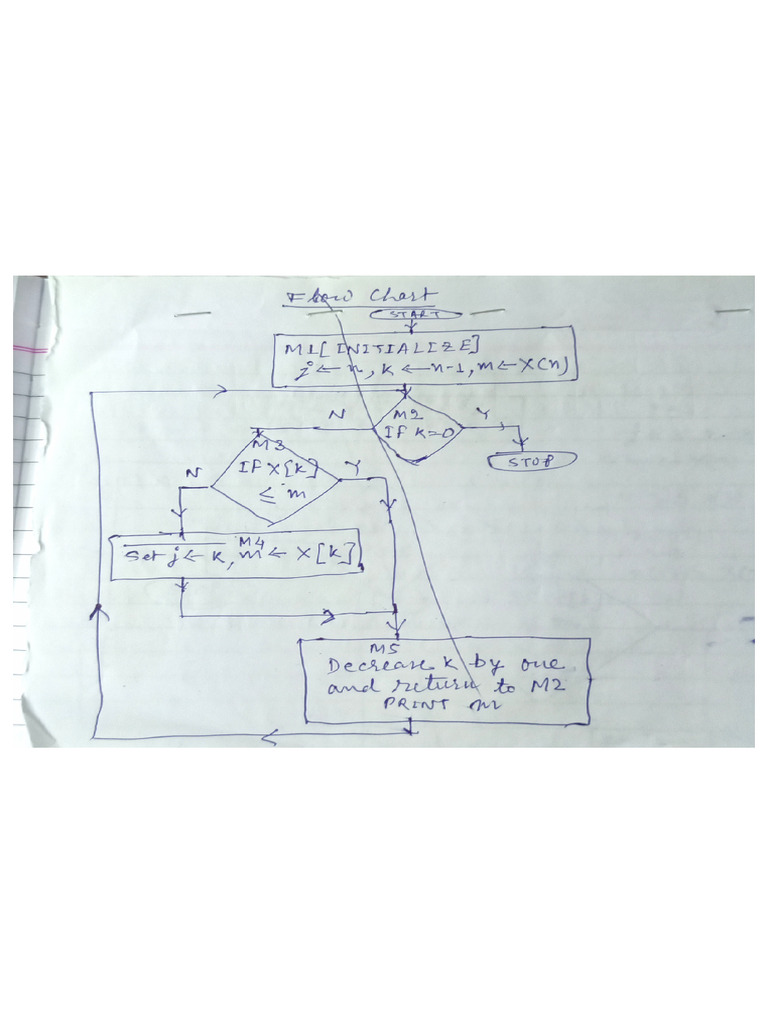 Flow Chart
START
M1[INITIALIZE]
j ← n, K ← n-1, m ← X(n)
N
M2
Y
If K=0
STOP
M3
N
If X[K]
Y
≤ m
M4
Set j ← K, m ← X[K]
M5
Decrease K by one
and return to M2
PRINT m